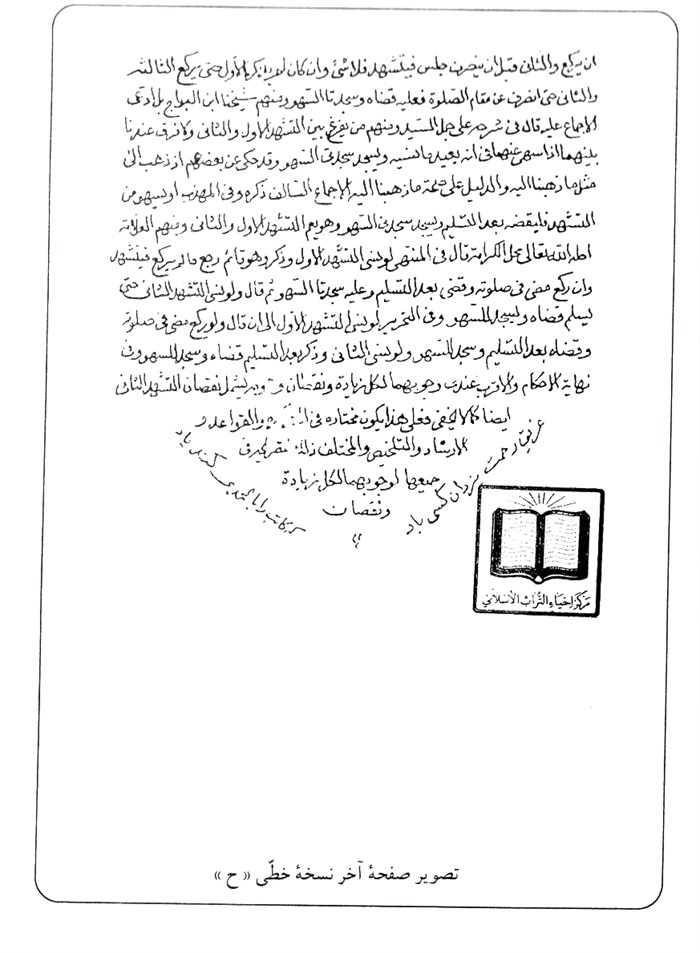 ان يركع والثانى قبل ان ينحرف جلس فيتشهد فلا شئ وان كان لم يذكر الأول حتى يركع الثالثة
والثانى حتى انحرف عن مقام الصلوة فعليه قضاه وسجدتا السهو ومنهم شيخنا ابن البراج بل ادعى
الاجماع عليه قال فى شرحه على جمل السيد ومنهم من يفرق بين التشهد الاول والثانى ولا فرق عندنا
بينهما اذا سهى عنهما فى انه يعيد ما نسيه ويسجد سجدتى السهو وقد حكى عن بعضهم انه ذهب الى
مثل ما ذهبنا اليه والدليل على صحة ما ذهبنا اليه الاجماع السالف ذكره وفى المهذب او يسهو عن
التشهد فليقضه بعد التسليم ويسجد سجدتى السهو وهو يعم التشهد الاول والثانى ومنهم العلامة
احله الله تعالى محل الكرامة قال فى المنتهى لو نسى التشهد الاول وذكر وهو قائم رجع ما لم يركع فيتشهد
وان ركع مضى فى صلوته وقضى بعد التسليم وعليه سجدتا السهو ثم قال ولو نسى التشهد الثانى حتى
يسلم قضاه ويسجد للسهو وفى التحرير لو نسى التشهد الأول الى ان قال ولو ركع مضى فى صلوته
وقضاه بعد التسليم وسجد للسهو ولو نسى الثانى وذكر بعد التسليم قضاء وسجد للسهو وفى
نهاية الاحكام والاقرب عندى وجوبهما لكل زيادة ونقصان وهو يشمل نقصان التشهد الثانى
ايضا كما لا يخفى فعلى هذا يكون مختاره فى والقواعد و
الارشاد والتلخيص والمختلف ذلك
جميعها لوجوبهما لكل زيادة
ونقصان
غريق رحمت يزدان كسى باد
كه كاتب را بالحمدى كند ياد
مركز احياء التراث الاسلامي
تصوير صفحۀ آخر نسخۀ خطّى « ح »